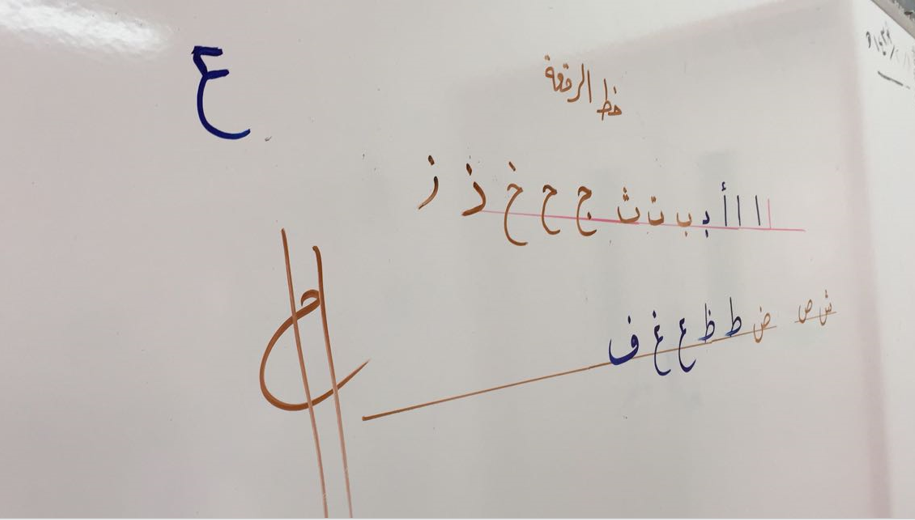 خط الرقعة
ع
ا ا ا أ ب ب ت ث ج ح خ ذ ز
ش ص ض ط ظ ع غ ف